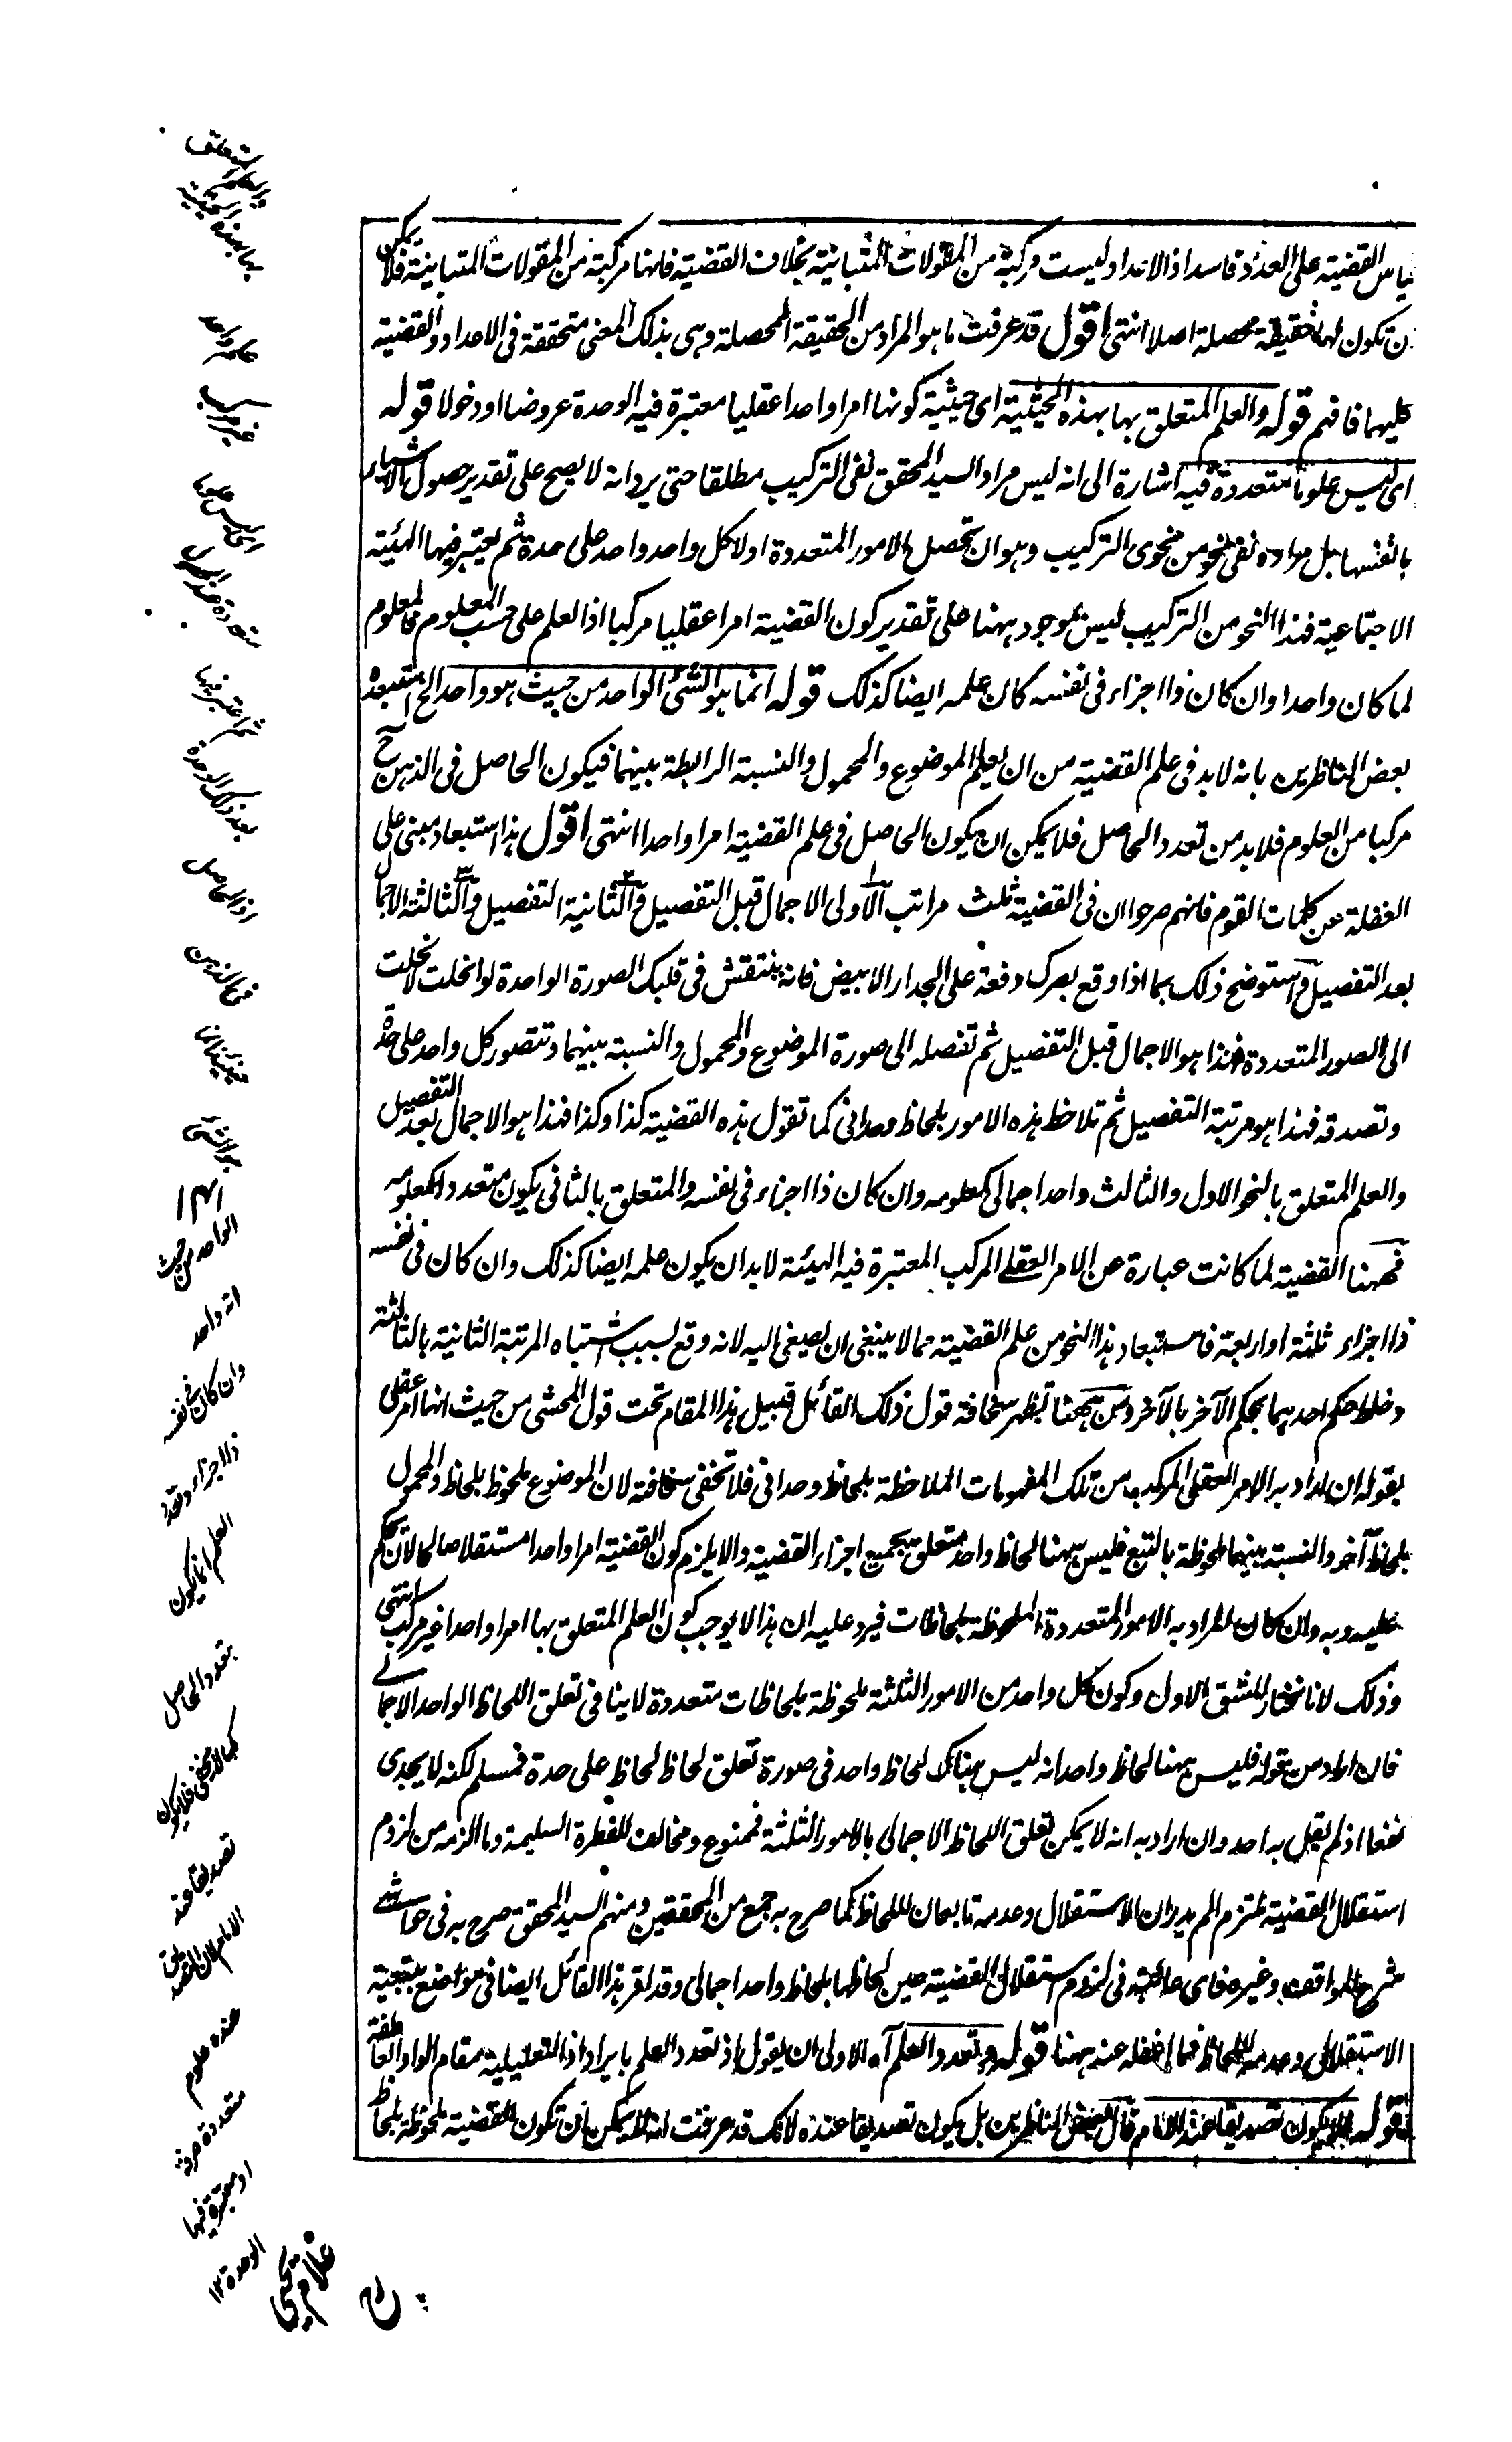 القضية على العدد فاسد اذ الاعداد ليست مركبة من المقولات المتبائنة بخلاف القضية فانها مركبة من المقولات المتباينة فلا يمكن
ان تكون لها حقيقة محصلة اصلا انتهى اقول قد عرفت ما هو المراد من الحقيقة المحصلة وهى بذلك المعنى متحققة فى الاعداد والقضية
كليهما فافهم قوله والعلم المتعلق بها بهذه الحيثية اى حيثية كونها امرا واحدا عقليا معتبرة فيه الوحدة عروضا او دخولا قوله
اى ليس علوما متعددة فيه اشارة الى انه ليس مراد السيد المحقق نفى التركيب مطلقا حتى يرد انه لا يصح على تقدير حصول الاشياء
بانفسها بل مراده نفى نحو من نحوى التركيب وهو ان تحصل الامور المتعددة اولا كل واحد واحد على حدة ثم يعتبر فيها الهيئة
الاجتماعية فهذا النحو من التركيب ليس بموجود ههنا على تقدير كون القضية امرا عقليا مركبا اذ العلم على حسب المعلوم فالمعلوم
لما كان واحدا وان كان ذا اجزاء فى نفسه كان علمه ايضا كذلك قوله انما هو الشئ الواحد من حيث هو واحد الخ استبعده
بعض الناظرين بانه لا بد فى علم القضية من ان يعلم الموضوع والمحمول والنسبة الرابطة بينهما فيكون الحاصل فى الذهن ح
مركبا من العلوم فلا بد من تعدد الحاصل فلا يمكن ان يكون الحاصل فى علم القضية امرا واحدا انتهى اقول هذا استبعاد مبنى على
الغفلة عن كلمات القوم فانهم صرحوا ان فى القضية ثلث مراتب الاولى الاجمال قبل التفصيل والثانية التفصيل والثالثة الاجمال
بعد التفصيل واستوضح ذلك بما اذا وقع بصرك دفعة على الجدار الابيض فانه ينتقش فى قلبك الصورة الواحدة لو انحلت لانحلت
الى الصور المتعددة فهذا هو الاجمال قبل التفصيل ثم تفصله الى صورة الموضوع والمحمول والنسبة بينهما وتتصور كل واحد على حدة
وتصدقه فهذا هو مرتبة التفصيل ثم تلاحظ هذه الامور بلحاظ وحدانى كما تقول هذه القضية كذا وكذا فهذا هو الاجمال بعد التفصيل
والعلم المتعلق بالنحو الاول والثالث واحد اجمالى كمعلومه وان كان ذا اجزاء فى نفسه والمتعلق بالثانى يكون متعددا كمعلومه
فههنا القضية لما كانت عبارة عن الامر العقلى المركب المعتبرة فيه الهيئة لا بد ان يكون علمه ايضا كذلك وان كان فى نفسه
ذا اجزاء ثلثة او اربعة فاستبعاد هذا النحو من علم القضية مما لا ينبغى ان يصغى اليه لانه وقع بسبب اشتباه المرتبة الثانية بالثالثة
وخلط حكم احدهما بحكم الآخر بالآخر ومن ههنا تظهر سخافة قول ذلك القائل قبيل هذا المقام تحت قول المحشى من حيث انها امر عقلى
بقوله ان اراد بالامر العقلى المركب من تلك المفهومات الملاحظة بلحاظ وحدانى فلا تخفى سخافته لان الموضوع ملحوظ بلحاظ والمحمول
بلحاظ آخر والنسبة بينهما ملحوظة بالتبع فليس ههنا لحاظ واحد متعلق بجميع اجزاء القضية والا يلزم كون القضية امرا واحدا مستقلا صالحا لان يحكم
عليه وبه وان كان المراد به الامور المتعددة الملحوظة بلحاظات فيرد عليه ان هذا لا يوجب كون العلم المتعلق بها امرا واحدا غير مركب انتهى
وذلك لانا نختار الشق الاول وكون كل واحد من الامور الثلثة ملحوظة بلحاظات متعددة لا ينافى تعلق اللحاظ الواحد الاجمالى
فان اراد من قوله فليس ههنا لحاظ واحد انه ليس هناك لحاظ واحد فى صورة تعلق لحاظ لحاظ على حدة فمسلم لكنه لا يجدى
نفعا اذ لم يقل به احد وان اراد به انه لا يمكن تعلق اللحاظ الاجمالى بالامور الثلثة فممنوع ومخالف للفطرة السليمة وما الزمه من لزوم
استقلال القضية فملتزم الم يدر ان الاستقلال وعدمه تابعان للحاظ كما صرح به جمع من المحققين ومنهم السيد المحقق صرح به فى حواشى
شرح المواقف وغيره فاى عائبة فى لزوم استقلال القضية حين لحاظها بلحاظ واحد اجمالى وقد اقر هذا القائل ايضا فى مواضع بتبعية
الاستقلال وعدمه للحاظ فما اغفله عنه ههنا قوله وتعدد العلم آه الاولى ان يقول اذ تعدد العلم بايراد اذ التعليلية مقام الواو العاطفة
قوله فلا يكون تصديقا عند الامام قال بعض الناظرين بل يكون تصديقا عنده لانك قد عرفت انه لا يمكن ان تكون القضية ملحوظة بلحاظ
المتعلق
بها بهذه الحيثية
علم واحد
غير مركب
اى ليس علوما
متعددة
ثم اعتبر فيها
بعد ذلك الوحدة
اذ الحاصل
فى الذهن
حينئذ انما
هو الشئ
الواحد من حيث
انه واحد
وان كان فى نفسه
ذا اجزاء وتعدد
العلم انما يكون
بتعدد الحاصل
كما لا يخفى فلا يكون
تصديقا عند
الامام لان التصديق
عنده علوم
متعددة صرفة
او معتبرة فيها
الوحدة ١٢
غلام يحيى